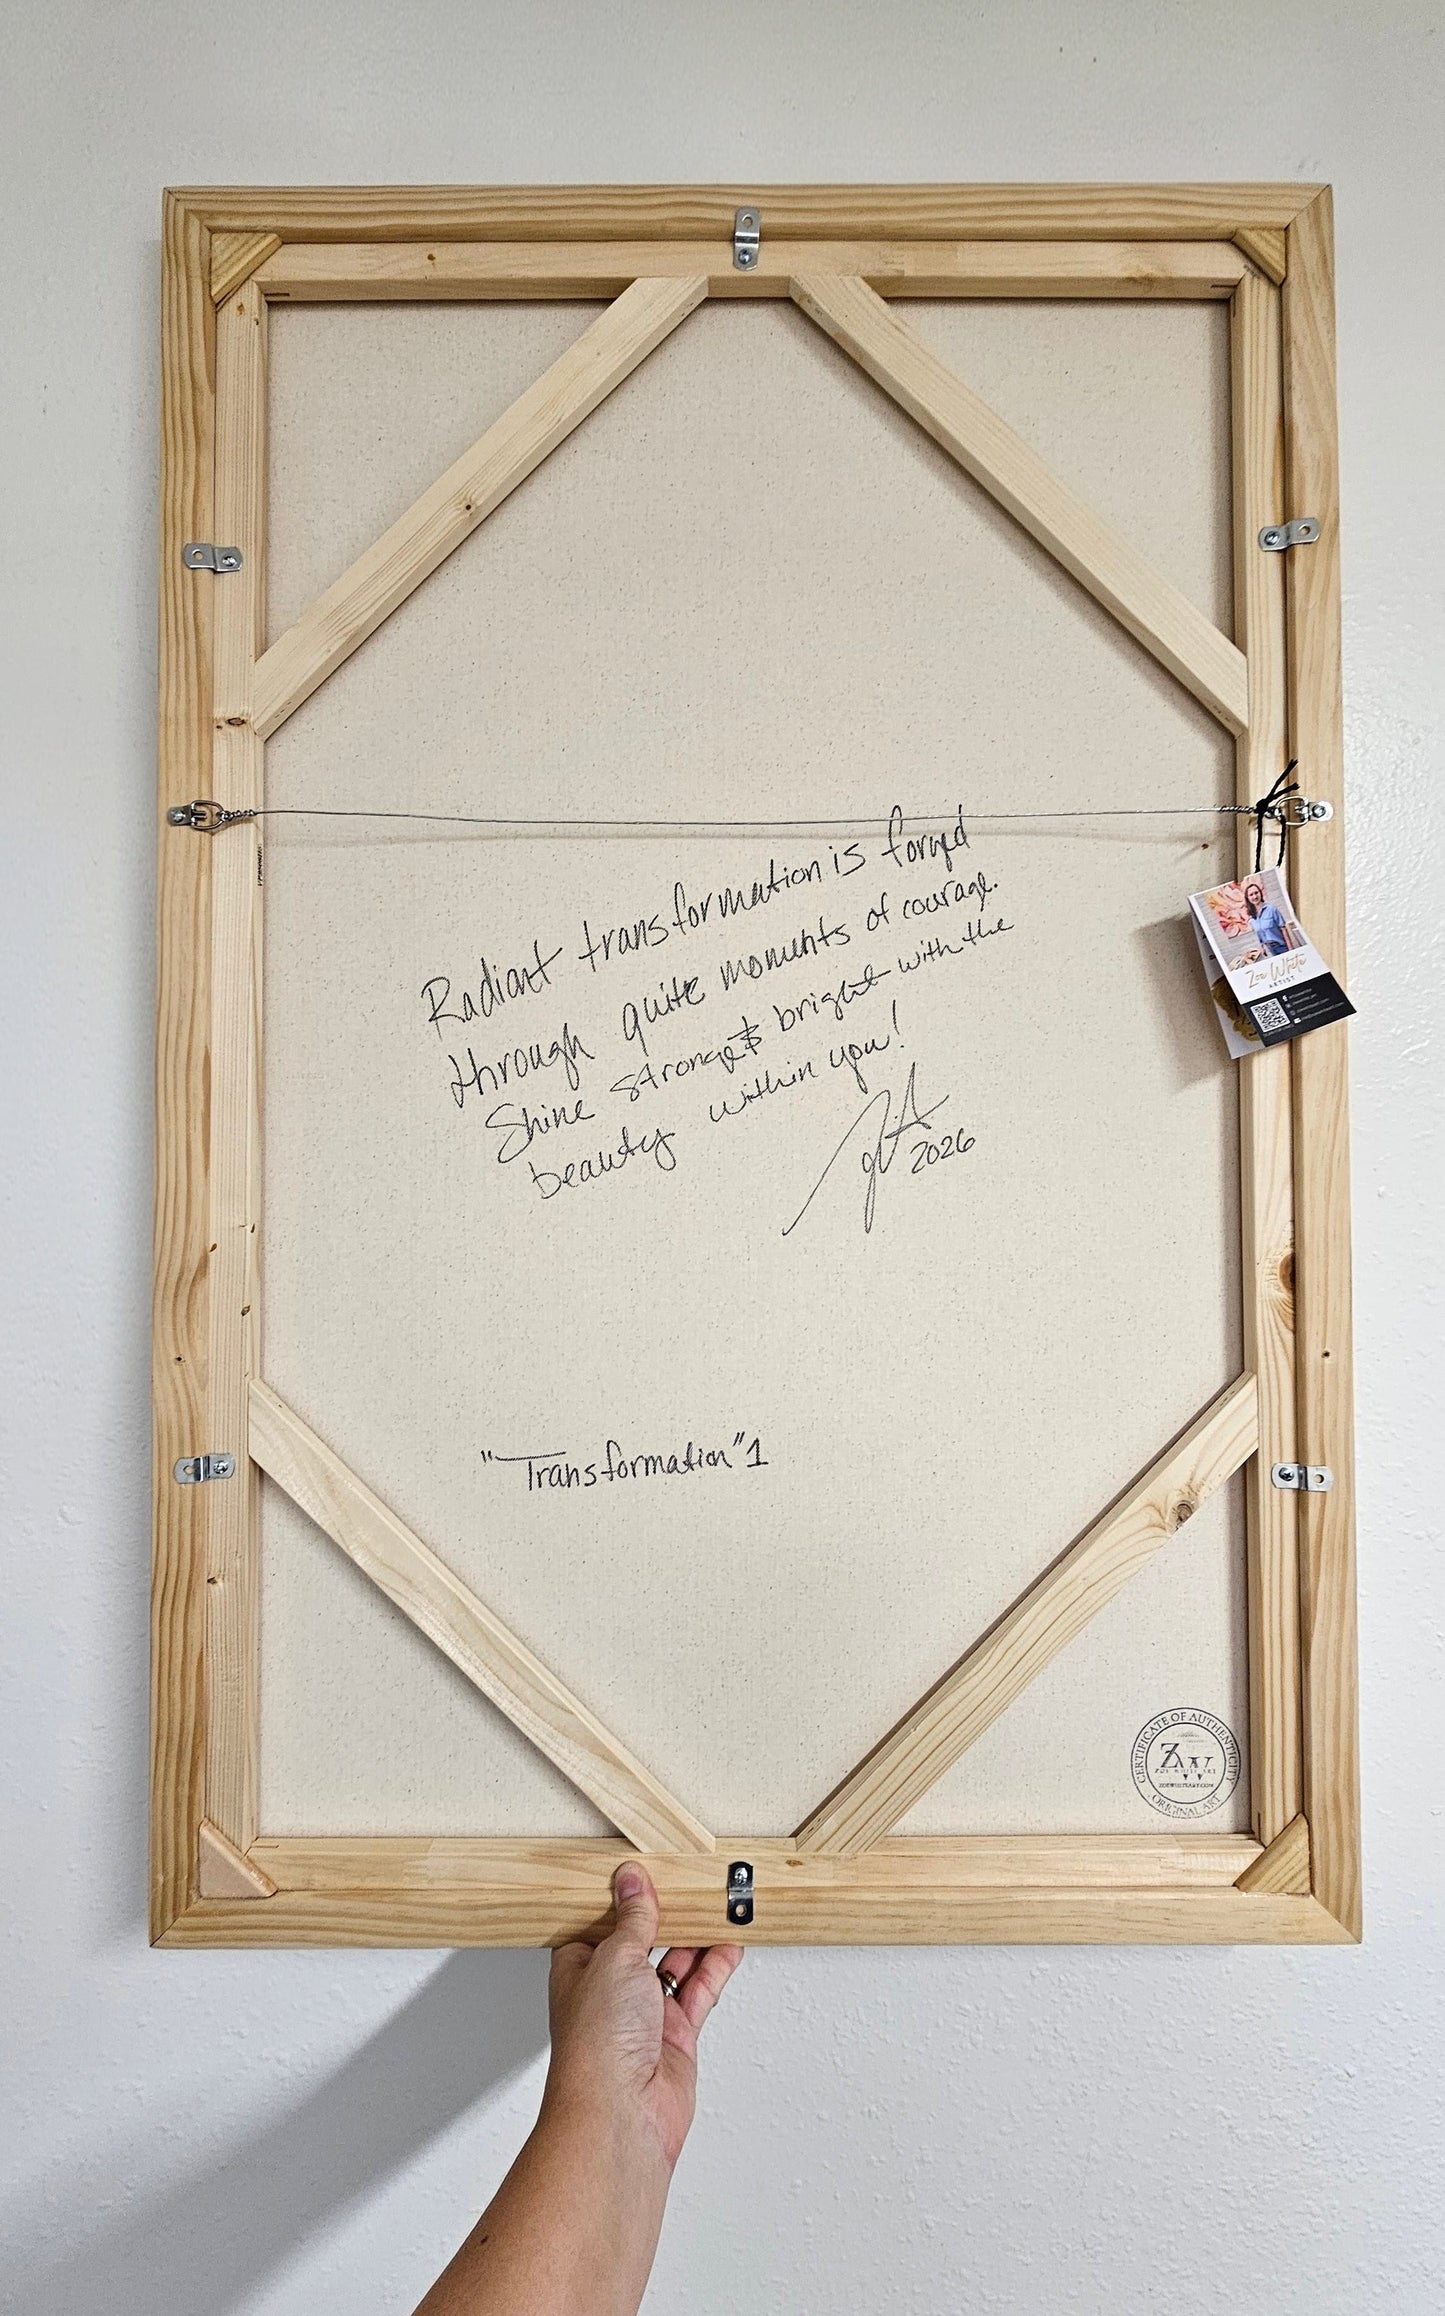 Radiant transformation is forged
through quite moments of courage.
Shine stronge & bright with the
beauty within you!
2026
"Transformation" 1
Zoe White
ARTIST
CERTIFICATE OF AUTHENTICITY
ZW
ZOE WHITE ART
ZOEWHITEART.COM
ORIGINAL ART